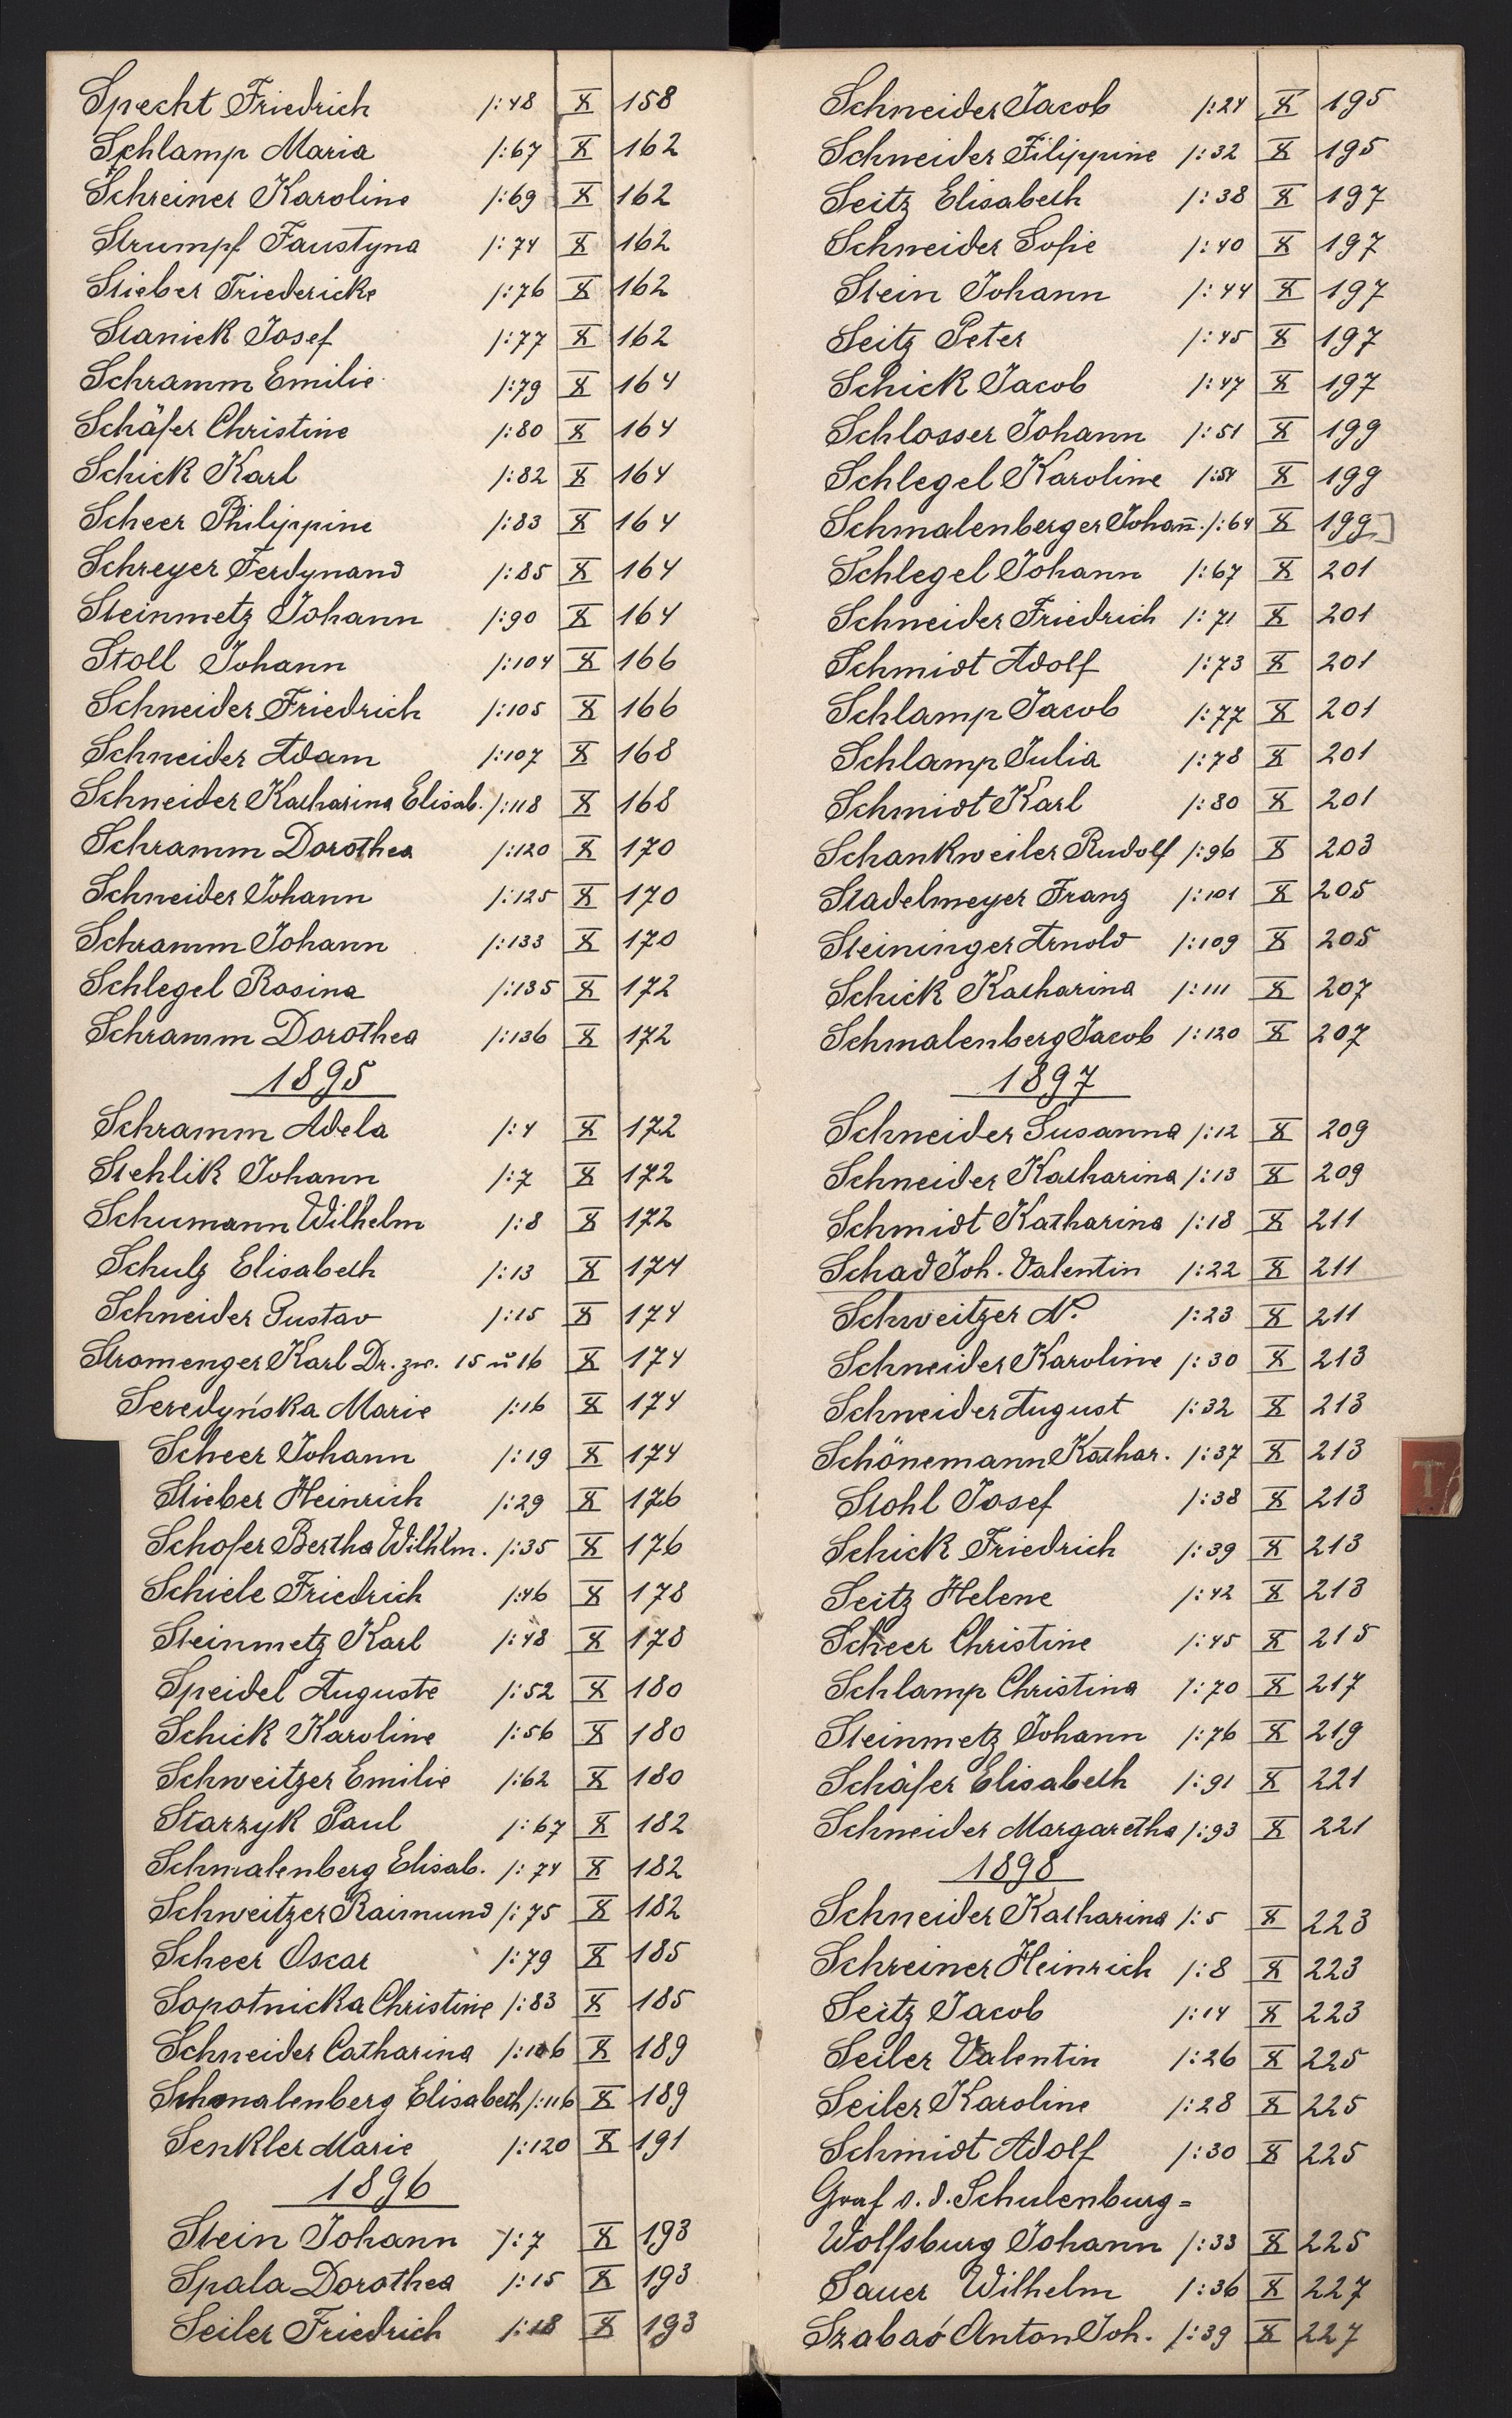 Specht Friedrich /:48 X 158
Schlamp Maria /:67 X 162
Schreiner Karoline /:69 X 162
Strumpf Faustyna /:74 X 162
Stieber Friedericke /:76 X 162
Stanick Josef /:77 X 162
Schramm Emilie /:79 X 164
Schäfer Christine /:80 X 164
Schick Karl /:82 X 164
Scheer Philippine /:83 X 164
Schreyer Ferdynand /:85 X 164
Steinmetz Johann /:90 X 164
Stoll Johann /:104 X 166
Schneider Friedrich /:105 X 166
Schneider Adam /:107 X 168
Schneider Katharina Elisab. /:118 X 168
Schramm Dorothea /:120 X 170
Schneider Johann /:125 X 170
Schramm Johann /:133 X 170
Schlegel Rosina /:135 X 172
Schramm Dorothea /:136 X 172
1895
Schramm Adela /:4 X 172
Stehlik Johann /:7 X 172
Schumann Wilhelm /:8 X 172
Schulz Elisabeth /:13 X 174
Schneider Gustav /:15 X 174
Stromenger Karl Dr. zw. 15 u 16 X 174
Seredyńska Marie /:16 X 174
Scheer Johann /:19 X 174
Stieber Heinrich /:29 X 176
Schofer Bertha Wilhlm. /:35 X 176
Schiele Friedrich /:46 X 178
Steinmetz Karl /:48 X 178
Speidel Auguste /:52 X 180
Schick Karoline /:56 X 180
Schweitzer Emilie /:62 X 180
Starzyk Paul /:67 X 182
Schmalenberg Elisab. /:74 X 182
Schweitzer Raimund /:75 X 182
Scheer Oscar /:79 X 185
Sopotnicka Christine /:83 X 185
Schneider Catharina /:106 X 189
Schmalenberg Elisabeth /:116 X 189
Senkler Marie /:120 X 191
1896
Stein Johann /:7 X 193
Spala Dorothea /:15 X 193
Seiler Friedrich /:18 X 193
Schneider Jacob /:24 X 195
Schneider Filippine /:32 X 195
Seitz Elisabeth /:38 X 197
Schneider Sofie /:40 X 197
Stein Johann /:44 X 197
Seitz Peter /:45 X 197
Schick Jacob /:47 X 197
Schlosser Johann /:51 X 199
Schlegel Karoline /:54 X 199
Schmalenberger Johañ. /:64 X 199
Schlegel Johann /:67 X 201
Schneider Friedrich /:71 X 201
Schmidt Adolf /:73 X 201
Schlamp Jacob /:77 X 201
Schlamp Julia /:78 X 201
Schmidt Karl /:80 X 201
Schankweiler Rudolf /:96 X 203
Stadelmeyer Franz /:101 X 205
Steininger Arnold /:109 X 205
Schick Katharina /:111 X 207
Schmalenberg Jacob /:120 X 207
1897
Schneider Susanna /:12 X 209
Schneider Katharina /:13 X 209
Schmidt Katharina /:18 X 211
Schad Joh. Valentin /:22 X 211
Schweitzer N. /:23 X 211
Schneider Karoline /:30 X 213
Schneider August /:32 X 213
Schönemann Kathar. /:37 X 213
T
Stohl Josef /:38 X 213
Schick Friedrich /:39 X 213
Seitz Helene /:42 X 213
Scheer Christine /:45 X 215
Schlamp Christina /:70 X 217
Steinmetz Johann /:76 X 219
Schäfer Elisabeth /:91 X 221
Schneider Margaretha /:93 X 221
1898
Schneider Katharina /:5 X 223
Schreiner Heinrich /:8 X 223
Seitz Jacob /:14 X 223
Seiler Valentin /:26 X 225
Seiler Karoline /:28 X 225
Schmidt Adolf /:30 X 225
Graf v. d. Schulenburg=
Wolfsburg Johann /:33 X 225
Sauer Wilhelm /:36 X 227
Szabaó Anton Joh. /:39 X 227